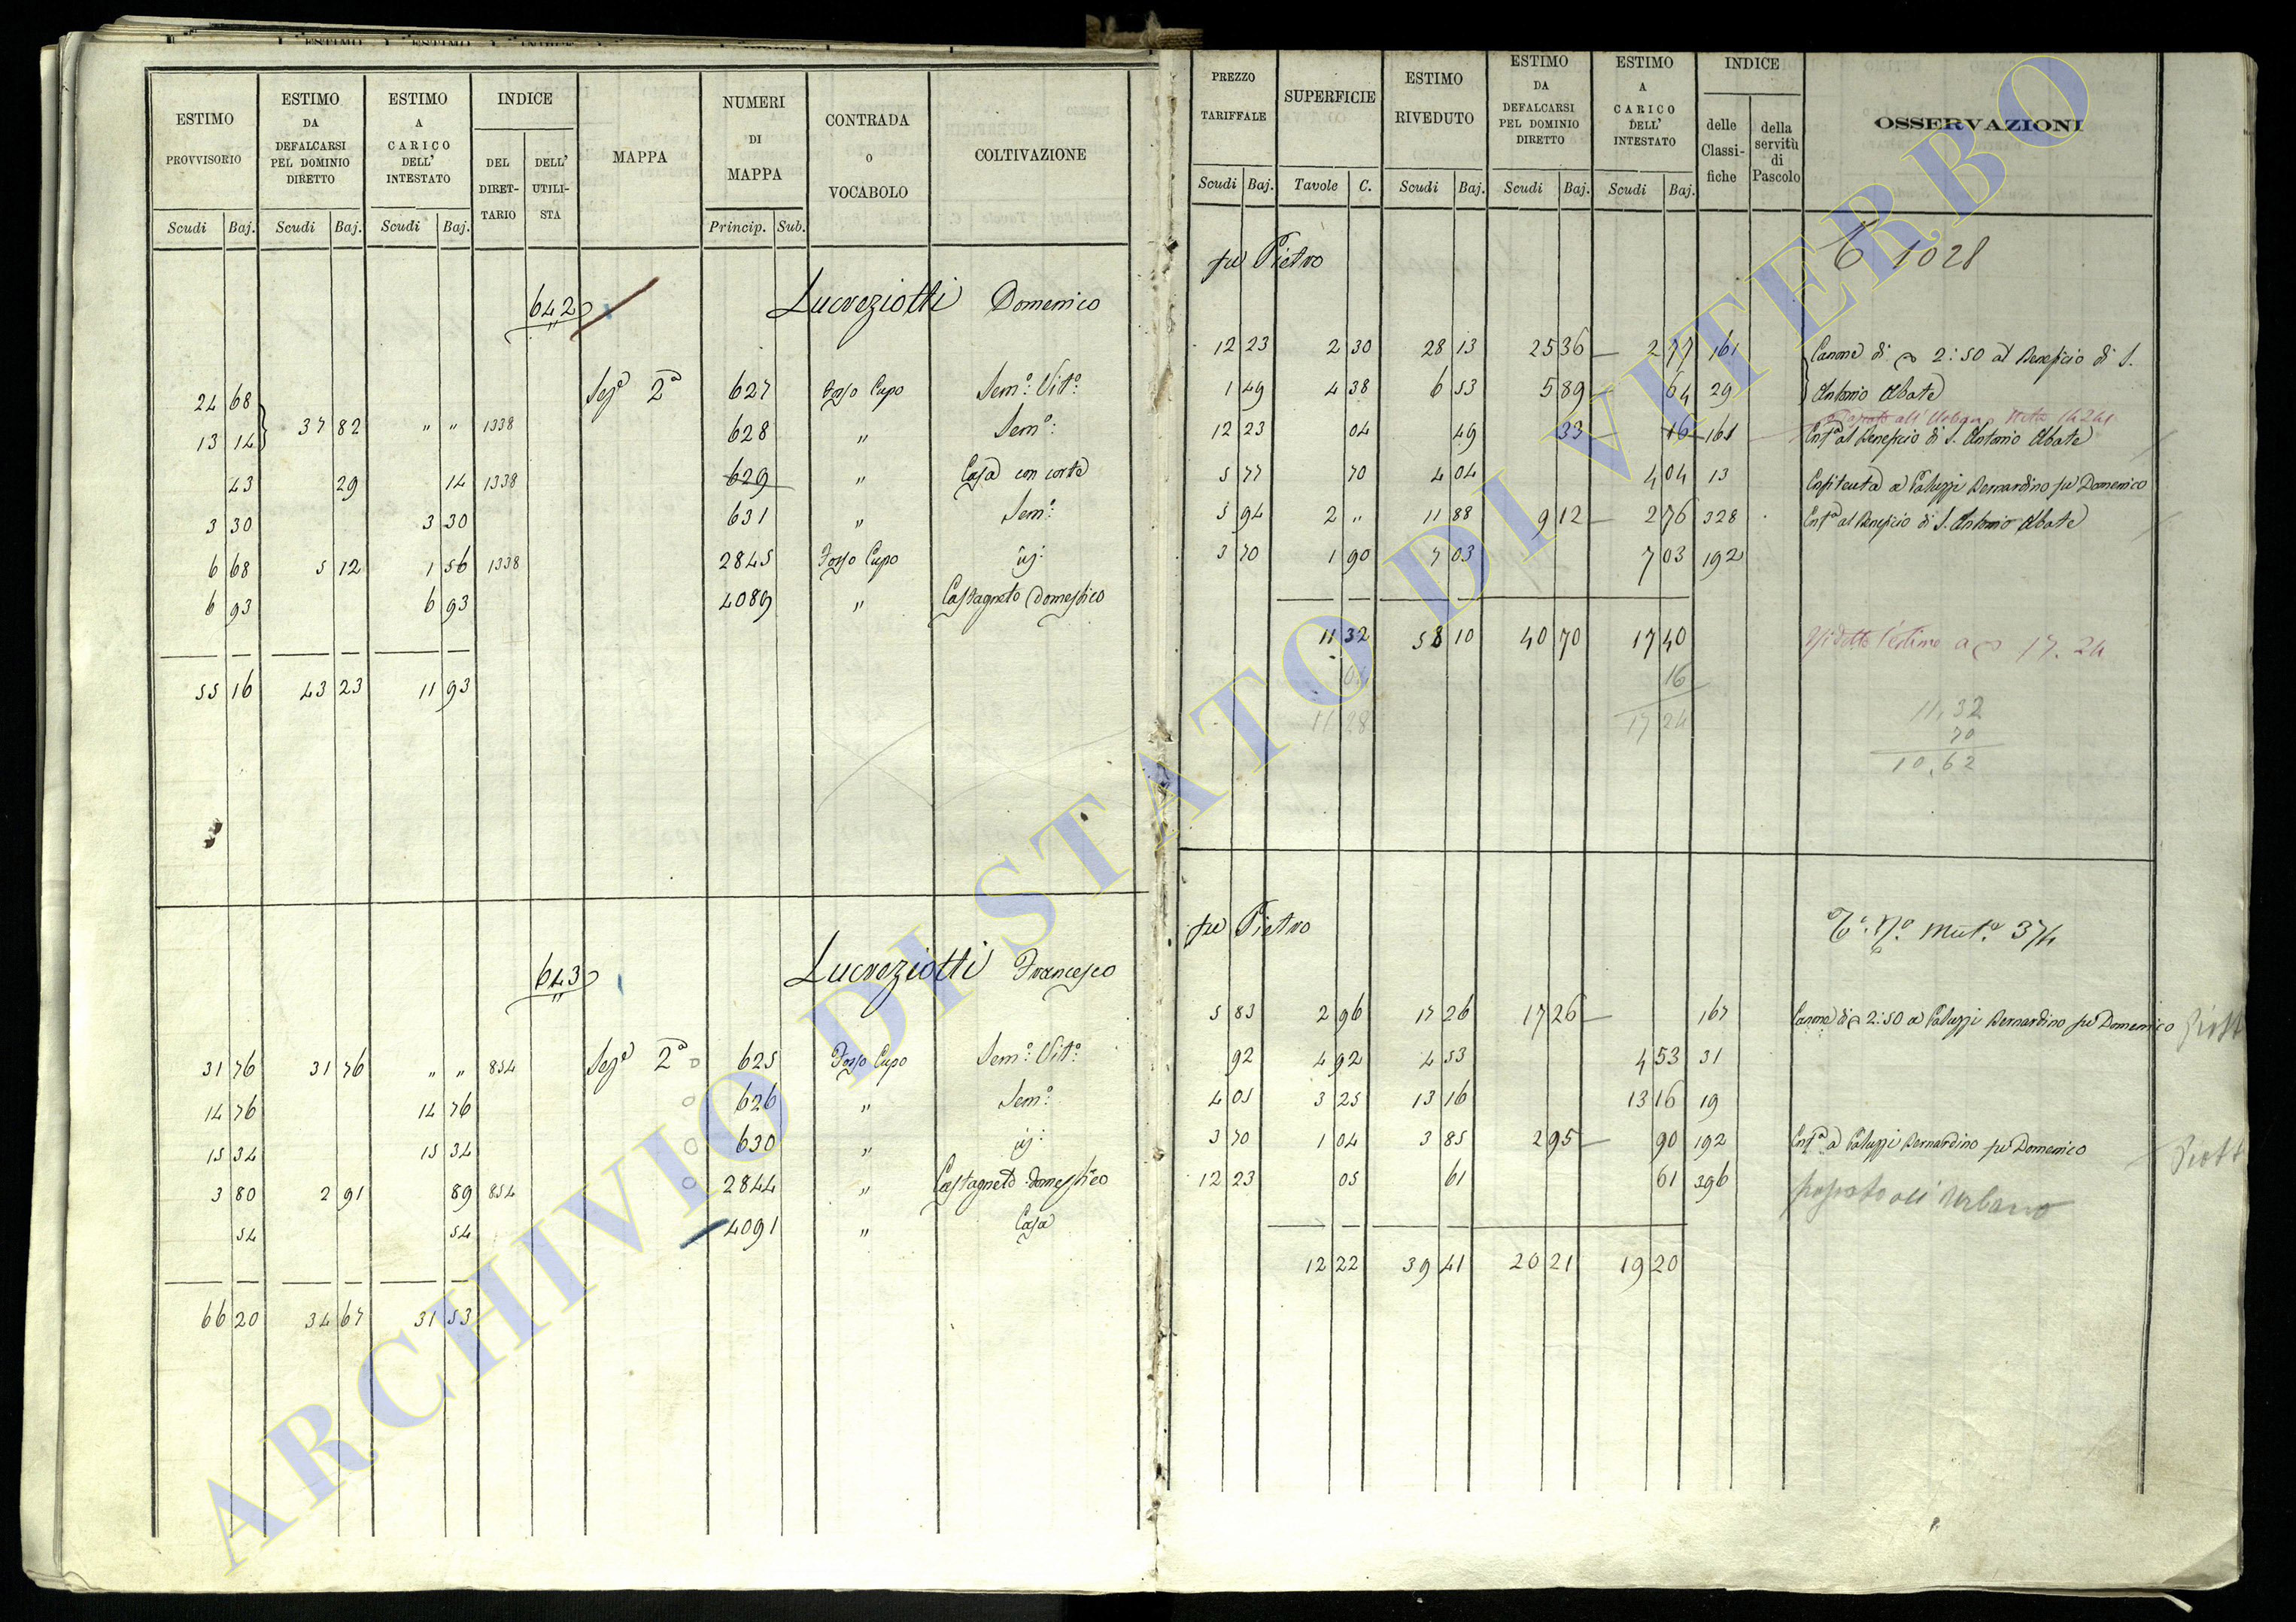 ESTIMO PROVVISORIO | ESTIMO DA DEFALCARSI PEL DOMINIO DIRETTO | ESTIMO A CARICO DELL' INTESTATO | INDICE | MAPPA | NUMERI DI MAPPA | CONTRADA O VOCABOLO | COLTIVAZIONE
DEL DIRETTARIO | DELL' UTILISTA
Scudi | Baj. | Scudi | Baj. | Scudi | Baj. | Princip. | Sub.
642 Lucreziotti Domenico
24 68 | Sez.e 2a | 627 | Fosso Cupo | Sem.o Vit.o
13 14 | 37 82 | " " | 1338 | 628 | " | Sem.o
43 | 29 | 14 | 1338 | 629 | " | Casa con corte
3 30 | 3 30 | 631 | " | Sem.o
6 68 | 5 12 | 1 56 | 1338 | 2845 | Fosso Cupo | id.
6 93 | 6 93 | 4089 | " | Castagneto domestico
55 16 | 43 23 | 11 93
643 Lucreziotti Francesco
31 76 | 31 76 | " " | 854 | Sez.e 2a | 625 | Fosso Cupo | Sem.o Vit.o
14 76 | 14 76 | 626 | " | Sem.o
15 34 | 15 34 | 630 | " | id.
3 80 | 2 91 | 89 | 854 | 2844 | " | Castagneto domestico
54 | 54 | 4091 | " | Casa
66 20 | 34 67 | 31 53
PREZZO TARIFFALE | SUPERFICIE | ESTIMO RIVEDUTO | ESTIMO DA DEFALCARSI PEL DOMINIO DIRETTO | ESTIMO A CARICO DELL' INTESTATO | INDICE | OSSERVAZIONI
delle Classifiche | della servitù di Pascolo
Scudi | Baj. | Tavole | C. | Scudi | Baj. | Scudi | Baj. | Scudi | Baj.
fu Pietro | 1028
12 23 | 2 30 | 28 13 | 25 36 | 2 77 | 161 | Canone di 2:50 al Beneficio di S.
1 49 | 4 38 | 6 53 | 5 89 | 64 | 29 | Antonio Abate
all' Urbano
12 23 | 04 | 49 | 33 | 16 | 161 | Enf.a al Beneficio di S. Antonio Abate
5 77 | 70 | 4 04 | 4 04 | 13 | Enfiteuta a Paluzzi Bernardino fu Domenico
5 94 | 2 " | 11 88 | 9 12 | 2 76 | 328 | Enf.a al Beneficio di S. Antonio Abate
3 70 | 1 90 | 7 03 | 7 03 | 192
11 32 | 58 10 | 40 70 | 17 40 | l'estimo a 17.24
04 | 16
11 28 | 17 24
11,32
70
10,62
fu Pietro | Mut.a 374
5 83 | 2 96 | 17 26 | 17 26 | 167 | Canone di 2:50 a Paluzzi Bernardino fu Domenico
92 | 4 92 | 4 53 | 4 53 | 31
4 05 | 3 25 | 13 16 | 13 16 | 19
3 70 | 1 04 | 3 85 | 2 95 | 90 | 192 | Enf.a a Paluzzi Bernardino fu Domenico
12 23 | 05 | 61 | 61 | 396 | passato all' Urbano
12 22 | 39 41 | 20 21 | 19 20
ARCHIVIO DI STATO DI VITERBO